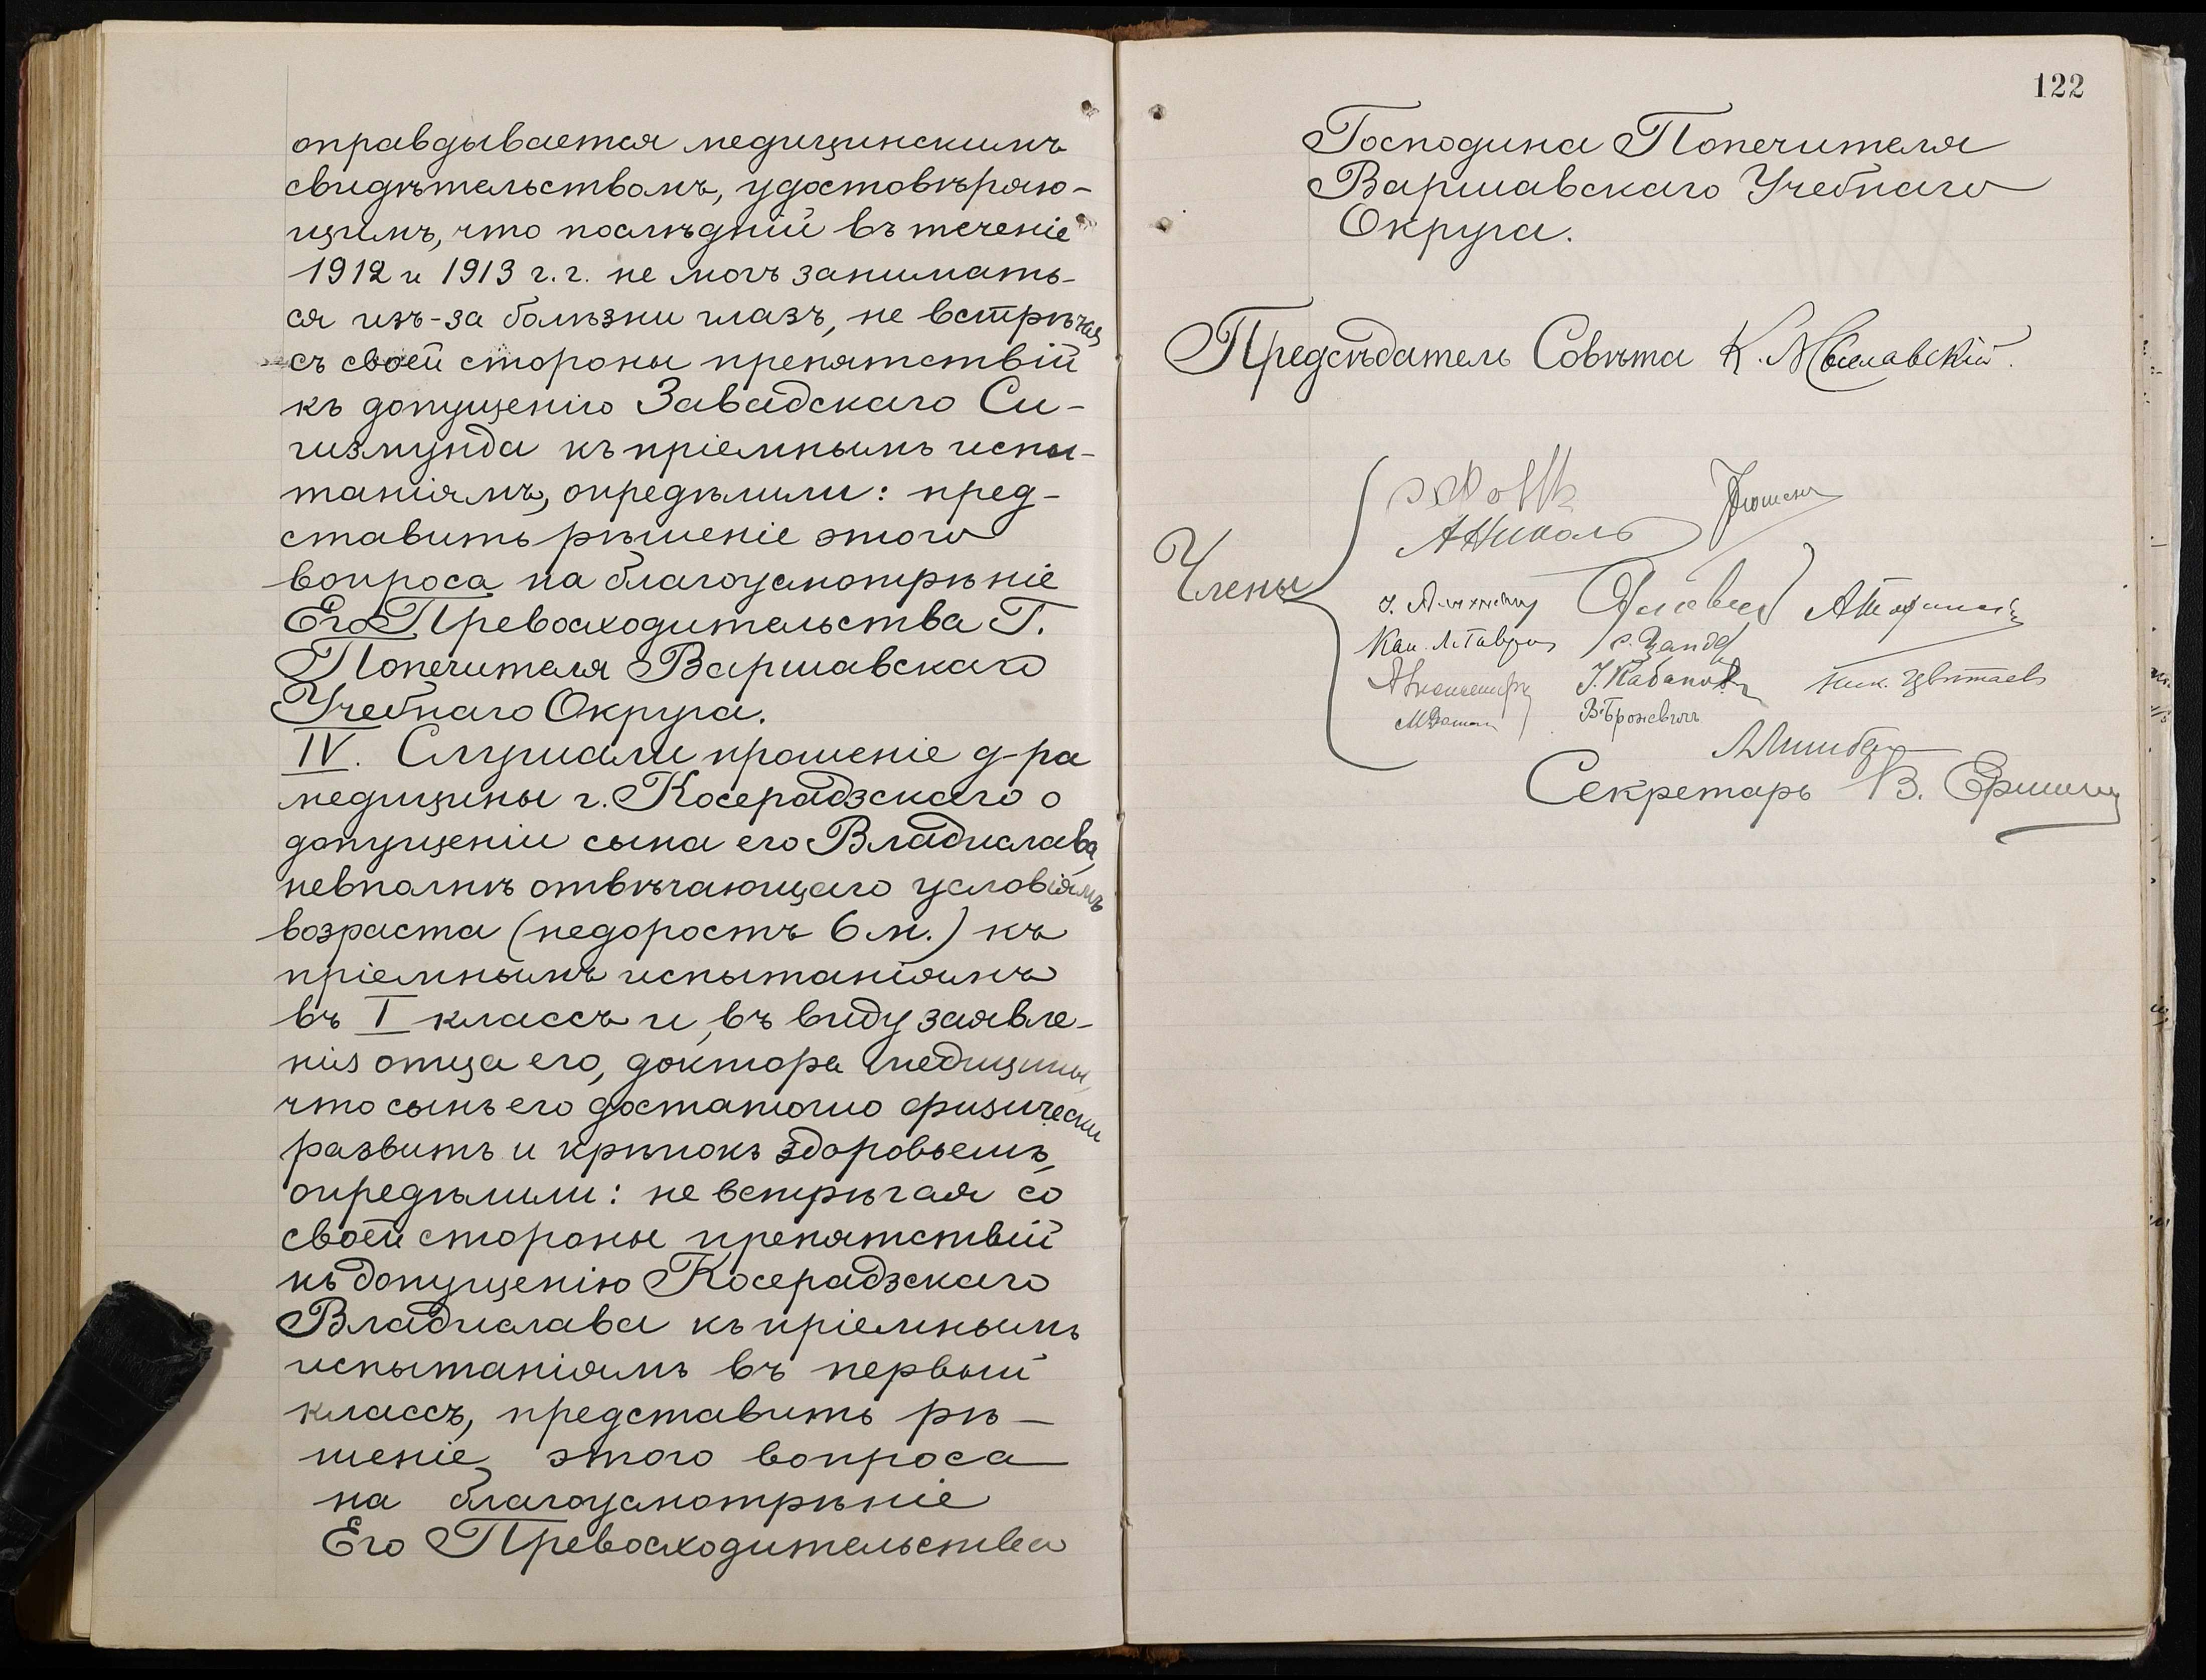 оправдывается медицинскимъ
свидѣтельствомъ, удостовѣряю-
щимъ, что послѣдній въ теченіе
1912 и 1913 г.г. не могъ занимать-
ся изъ-за болѣзни глазъ, не встрѣчая
съ своей стороны препятствій
къ допущенію Завадскаго Си-
гизмунда къ пріемнымъ испы-
таніямъ, опредѣлили: пред-
ставить рѣшеніе этого
вопроса на благоусмотрѣніе
Его Превосходительства Г.
Попечителя Варшавскаго
Учебнаго Округа.
IV. Слушали прошеніе д-ра
медицины г. Косерадзскаго о
допущеніи сына его Владислава,
невполнѣ отвѣчающаго условіямъ
возраста (недоростъ 6 м.) къ
пріемнымъ испытаніямъ
въ I классъ и, въ виду заявле-
нія отца его, доктора медицины,
что сынъ его достаточно физически
развитъ и крѣпокъ здоровьемъ,
опредѣлили: не встрѣчая со
своей стороны препятствій
къ допущенію Косерадзскаго
Владислава къ пріемнымъ
испытаніямъ въ первый
классъ, представить рѣ-
шеніе этого вопроса
на благоусмотрѣніе
Его Превосходительства
122
Господина Попечителя
Варшавскаго Учебнаго
Округа.
Предсѣдатель Совѣта К.
Члены
А Николь
С. Цандъ
І. Кабановъ Ник. Цвѣтаевъ
В. Броневичъ
Секретарь В.